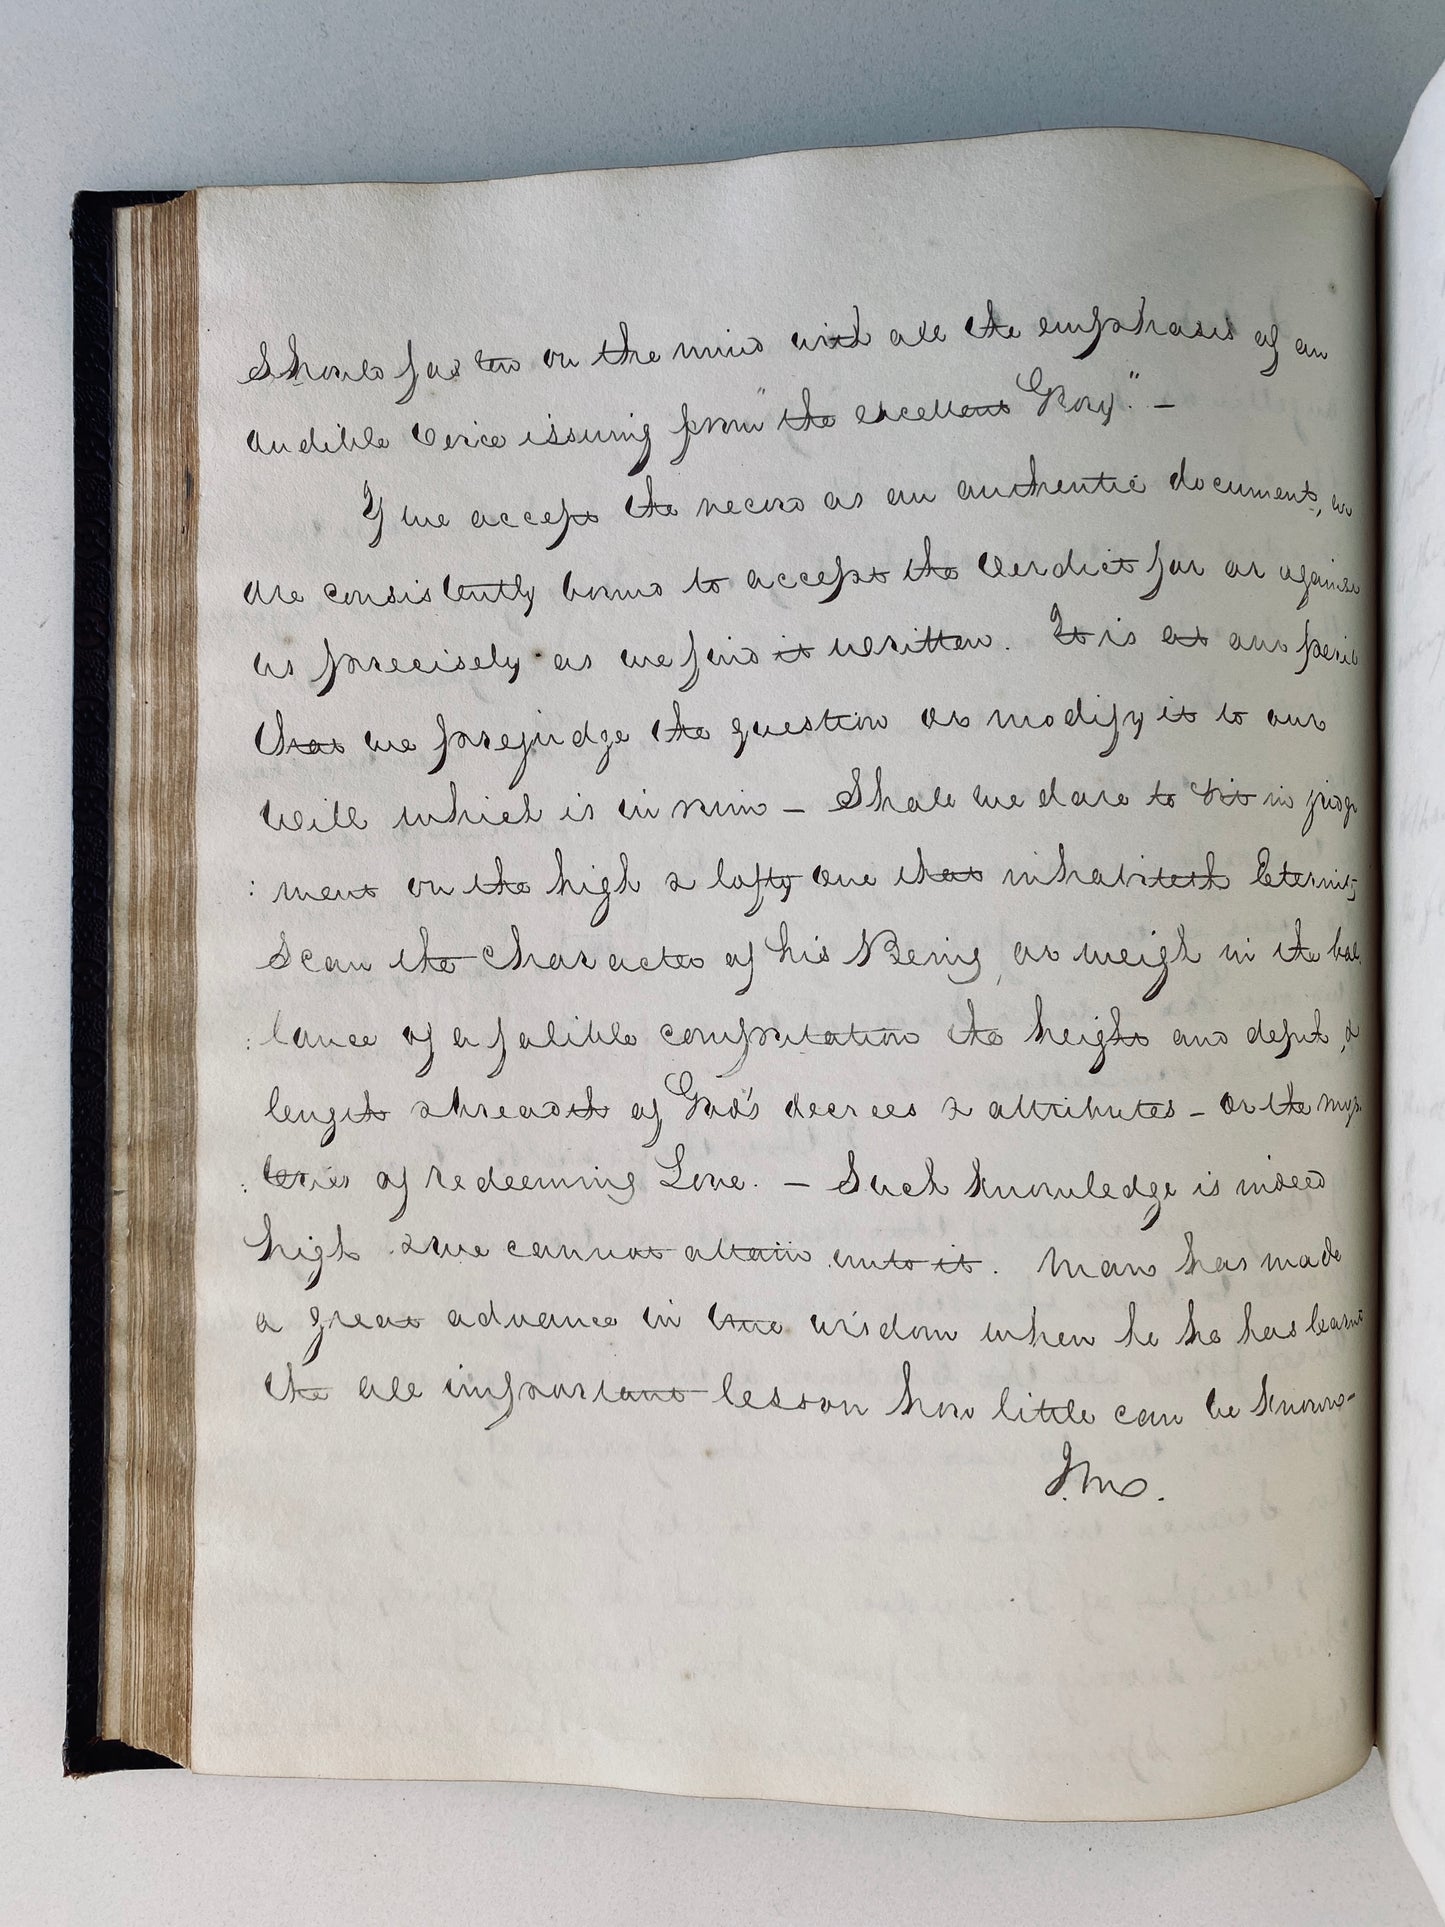 should fasten on the mind with all the emphasis of an
audible voice issuing from "the excellent Glory." –
If we accept the record as an authentic document, we
are consistently bound to accept the verdict for or against
us precisely as we find it written. It is at our peril
that we prejudge the question or modify it to our
will which is in ruin – Shall we dare to sit in judge
: ment on the high & lofty One that inhabiteth Eternity
scan the character of his Being, or weigh in the bal
: lance of a fallible computation the height and depth, &
length & breadth of God's decrees & attributes – Or the mys
: teries of redeeming Love. – Such knowledge is indeed
high & we cannot attain unto it. Man has made
a great advance in true wisdom when he he has learnt
the all important lesson how little can be known –